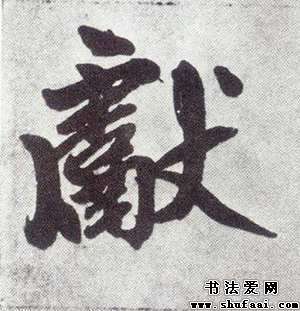 獻
书法爱网
www.shufaai.com